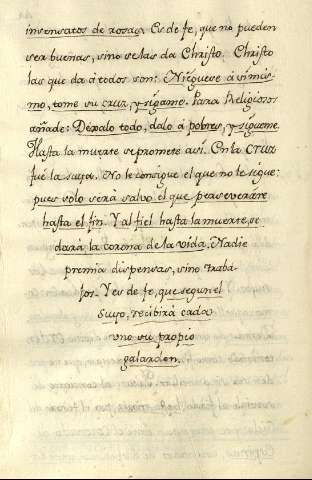 insensatos de rosas. Es de fe, que no pueden
ser buenas, sino se las da Christo. Christo
las que da á todos son: Nieguese á si mis-
mo, tome su cruz, y sigame. Para Religiosos
añade: Déxalo todo, dalo á pobres, y sigueme.
Hasta la muerte se promete asi. En la Cruz
fué la suya. No le consigue el que no le sigue:
pues solo será salvo el que perseverare
hasta el fin. Y al fiel hasta la muerte, se
dará la corona de la vida. Nadie
premia dispensas, sino traba-
jos. Y es de fe, que segun el
suyo, recibirá cada
uno su propio
galardon.